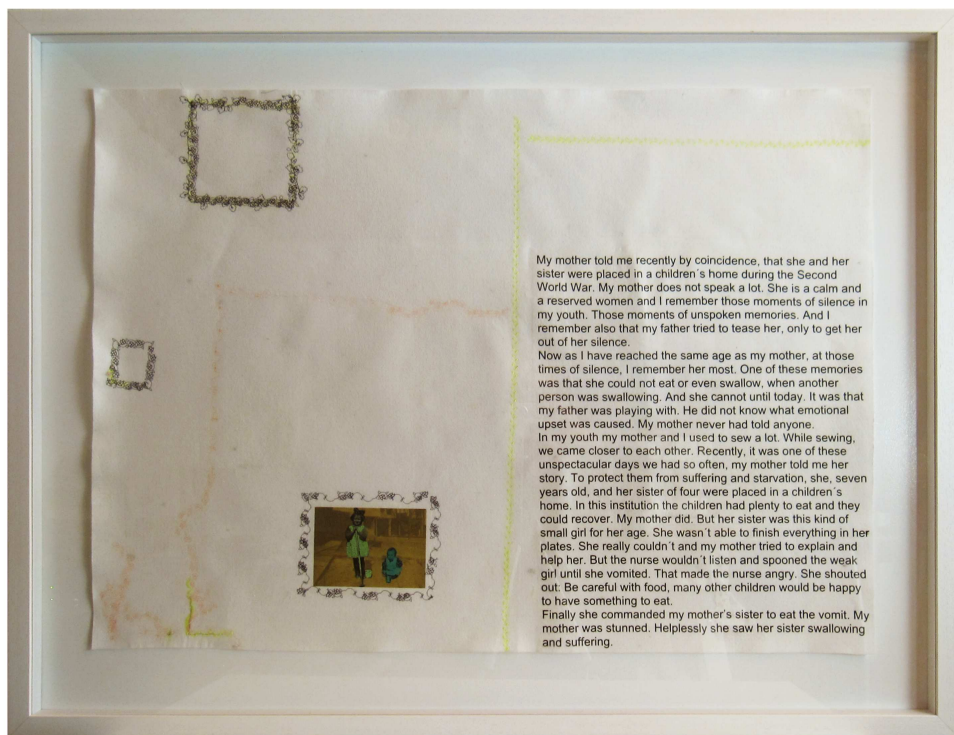 My mother told me recently by coincidence, that she and her
sister were placed in a children´s home during the Second
World War. My mother does not speak a lot. She is a calm and
a reserved women and I remember those moments of silence in
my youth. Those moments of unspoken memories. And I
remember also that my father tried to tease her, only to get her
out of her silence.
Now as I have reached the same age as my mother, at those
times of silence, I remember her most. One of these memories
was that she could not eat or even swallow, when another
person was swallowing. And she cannot until today. It was that
my father was playing with. He did not know what emotional
upset was caused. My mother never had told anyone.
In my youth my mother and I used to sew a lot. While sewing,
we came closer to each other. Recently, it was one of these
unspectacular days we had so often, my mother told me her
story. To protect them from suffering and starvation, she, seven
years old, and her sister of four were placed in a children´s
home. In this institution the children had plenty to eat and they
could recover. My mother did. But her sister was this kind of
small girl for her age. She wasn´t able to finish everything in her
plates. She really couldn´t and my mother tried to explain and
help her. But the nurse wouldn´t listen and spooned the weak
girl until she vomited. That made the nurse angry. She shouted
out. Be careful with food, many other children would be happy
to have something to eat.
Finally she commanded my mother's sister to eat the vomit. My
mother was stunned. Helplessly she saw her sister swallowing
and suffering.